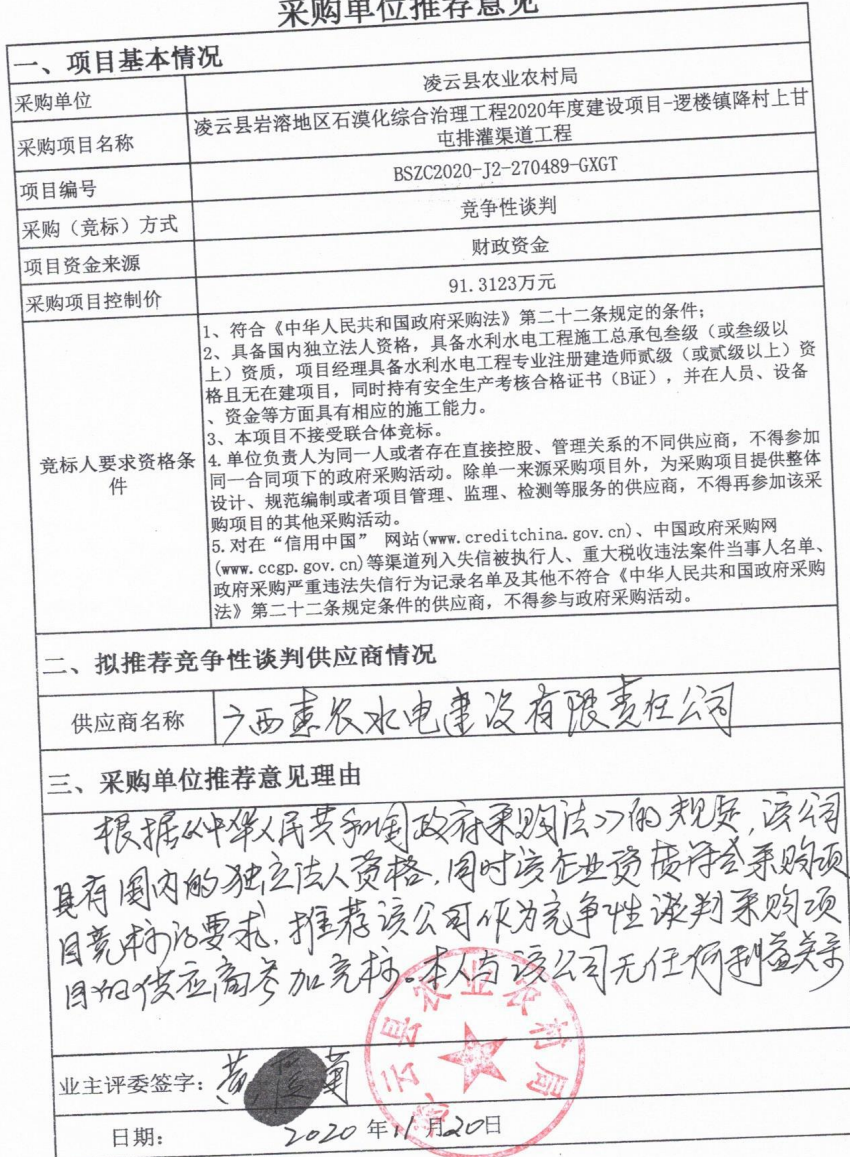 采购单位推荐意见
一、项目基本情况
采购单位
凌云县农业农村局
采购项目名称
凌云县岩溶地区石漠化综合治理工程2020年度建设项目-逻楼镇降村上甘
屯排灌渠道工程
项目编号
BSZC2020-J2-270489-GXGT
采购（竞标）方式
竞争性谈判
项目资金来源
财政资金
采购项目控制价
91.3123万元
竞标人要求资格条
件
1、符合《中华人民共和国政府采购法》第二十二条规定的条件；
2、具备国内独立法人资格，具备水利水电工程施工总承包叁级（或叁级以
上）资质，项目经理具备水利水电工程专业注册建造师贰级（或贰级以上）资
格且无在建项目，同时持有安全生产考核合格证书（B证），并在人员、设备
、资金等方面具有相应的施工能力。
3、本项目不接受联合体竞标。
4.单位负责人为同一人或者存在直接控股、管理关系的不同供应商，不得参加
同一合同项下的政府采购活动。除单一来源采购项目外，为采购项目提供整体
设计、规范编制或者项目管理、监理、检测等服务的供应商，不得再参加该采
购项目的其他采购活动。
5.对在“信用中国” 网站(www.creditchina.gov.cn)、中国政府采购网
(www.ccgp.gov.cn)等渠道列入失信被执行人、重大税收违法案件当事人名单、
政府采购严重违法失信行为记录名单及其他不符合《中华人民共和国政府采购
法》第二十二条规定条件的供应商，不得参与政府采购活动。
二、拟推荐竞争性谈判供应商情况
供应商名称
广西惠农水电建设有限责任公司
三、采购单位推荐意见理由
根据《中华人民共和国政府采购法》的规定，该公司
具有国内的独立法人资格，同时该企业资质符合采购项
目竞标的要求，推荐该公司作为竞争性谈判采购项
目的供应商参加竞标。本人与该公司无任何利益关系
凌云县农业农村局
业主评委签字：
黄 菊
日期：
2020年11月20日